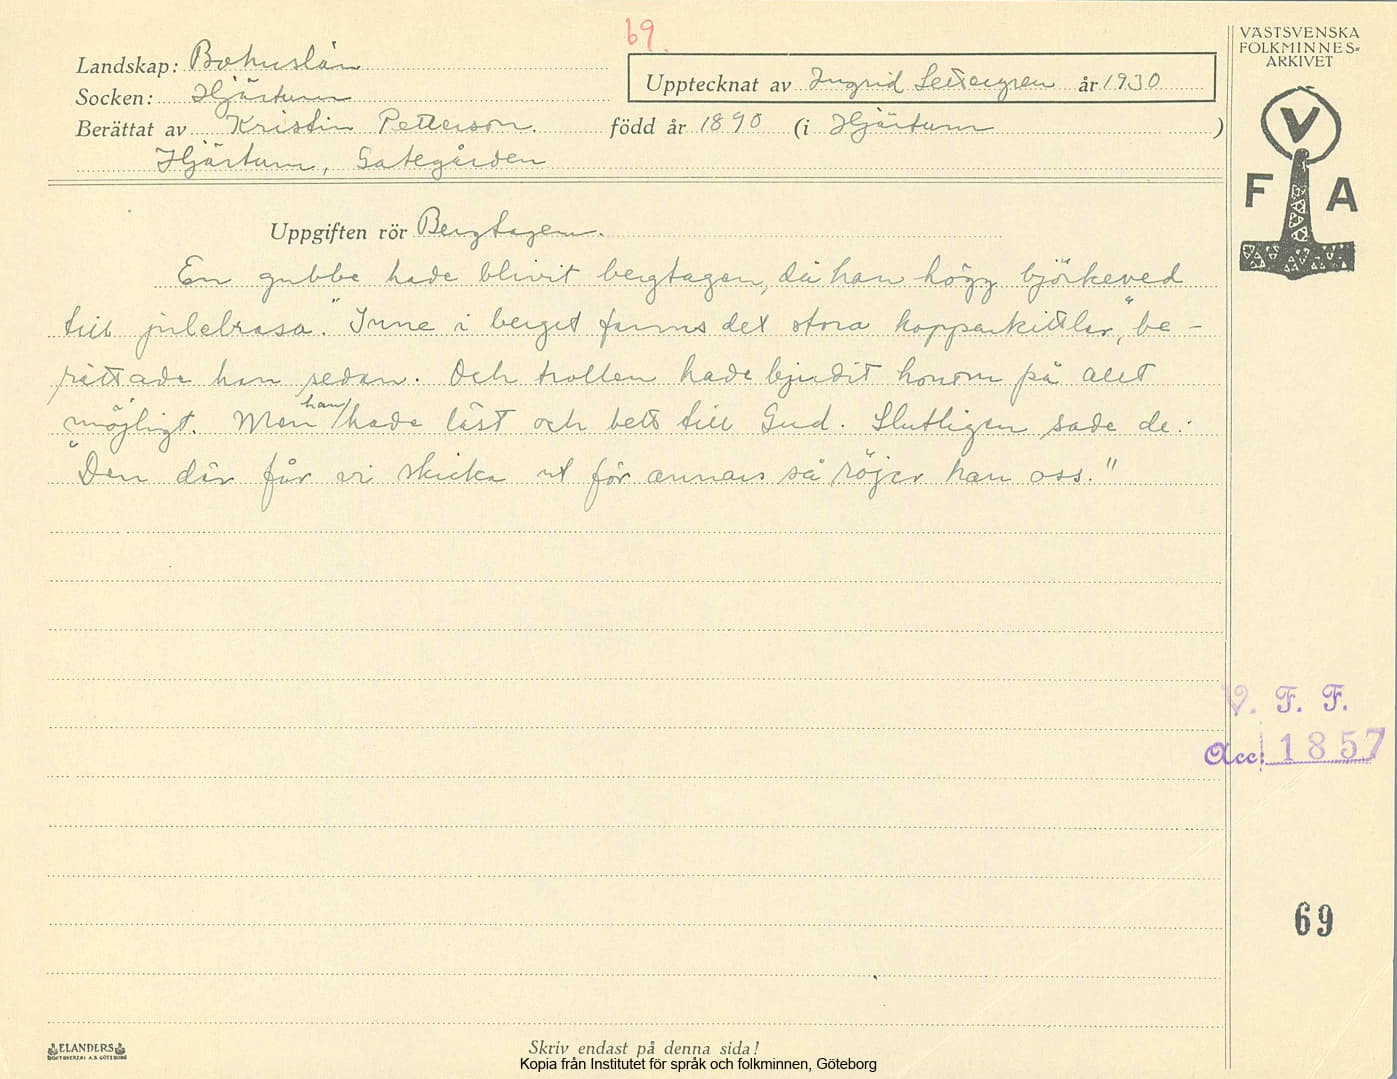 69.
VÄSTSVENSKA
FOLKMINNES-
ARKIVET
Landskap: Bohuslän
Upptecknat av Ingrid Settergren år 1930
Socken: Hjärtum
Berättat av Kristin Petterson. född år 1890 (i Hjärtum )
Hjärtum, Gategården
V
F A
Uppgiften rör Bergtagen.
En gubbe hade blivit bergtagen, då han högg björkeved
till julebrasa. "Inne i berget fanns det stora kopparkittlar", be-
rättade han sedan. Och trollen hade bjudit honom på allt
möjligt. Men han hade läst och bett till Gud. Slutligen sade de:
"Den där får vi skicka ut för annars så röjer han oss."
V. F. F.
Acc: 1857
69
ELANDERS
BOKTRYCKERI A.B. GÖTEBORG
Skriv endast på denna sida!
Kopia från Institutet för språk och folkminnen, Göteborg